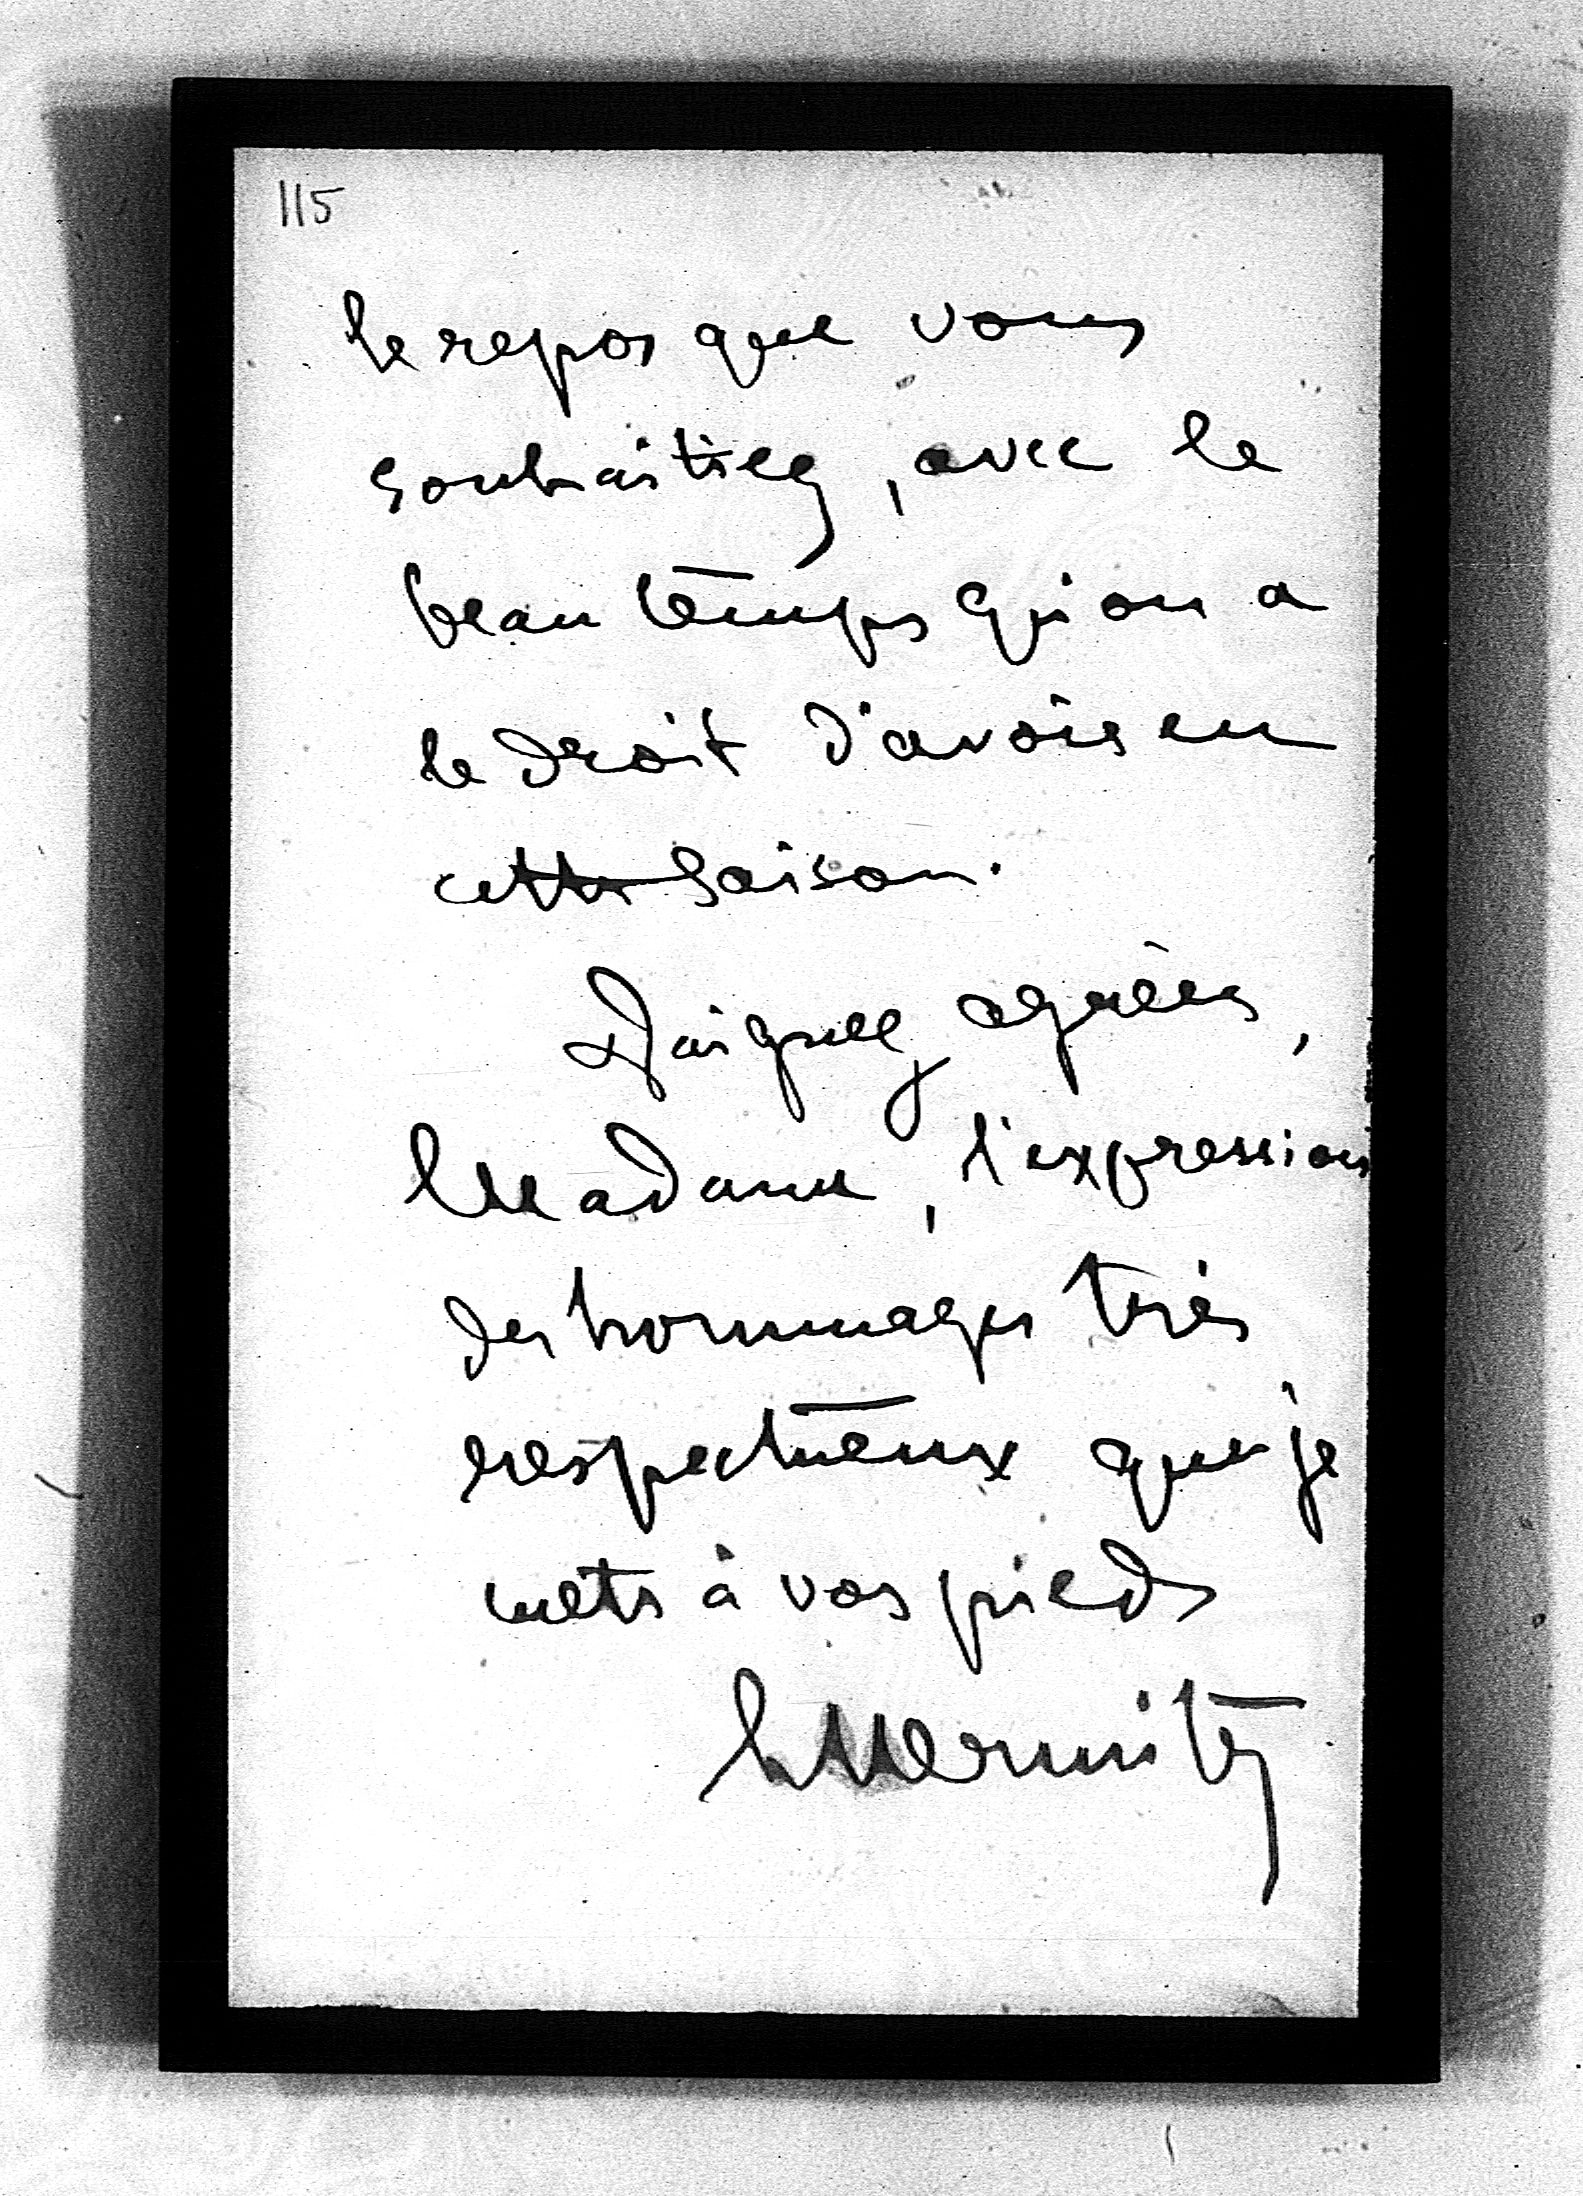 115
le repos que vous
souhaitiez, avec le
beau temps qu'on a
le droit d'avoir en
cette saison.
Daignez agréer,
Madame, l'expression
des hommages très
respectueux que je
mets à vos pieds